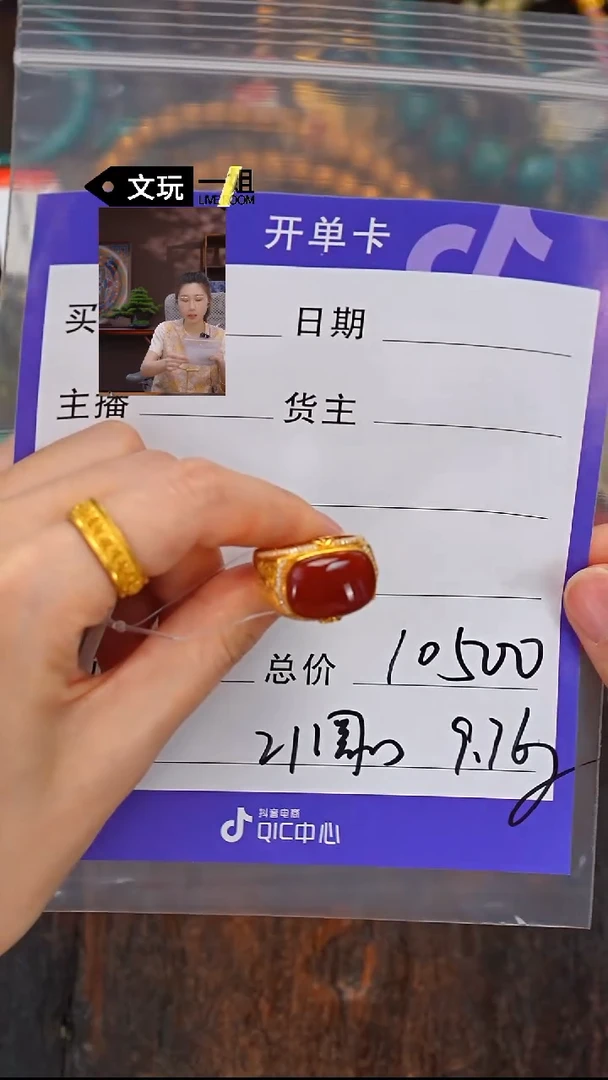 文玩一姐
LIVE ROOM
开单卡
日期
主播 货主
总价 10500
211圈口 9.76g
抖音电商
QIC中心